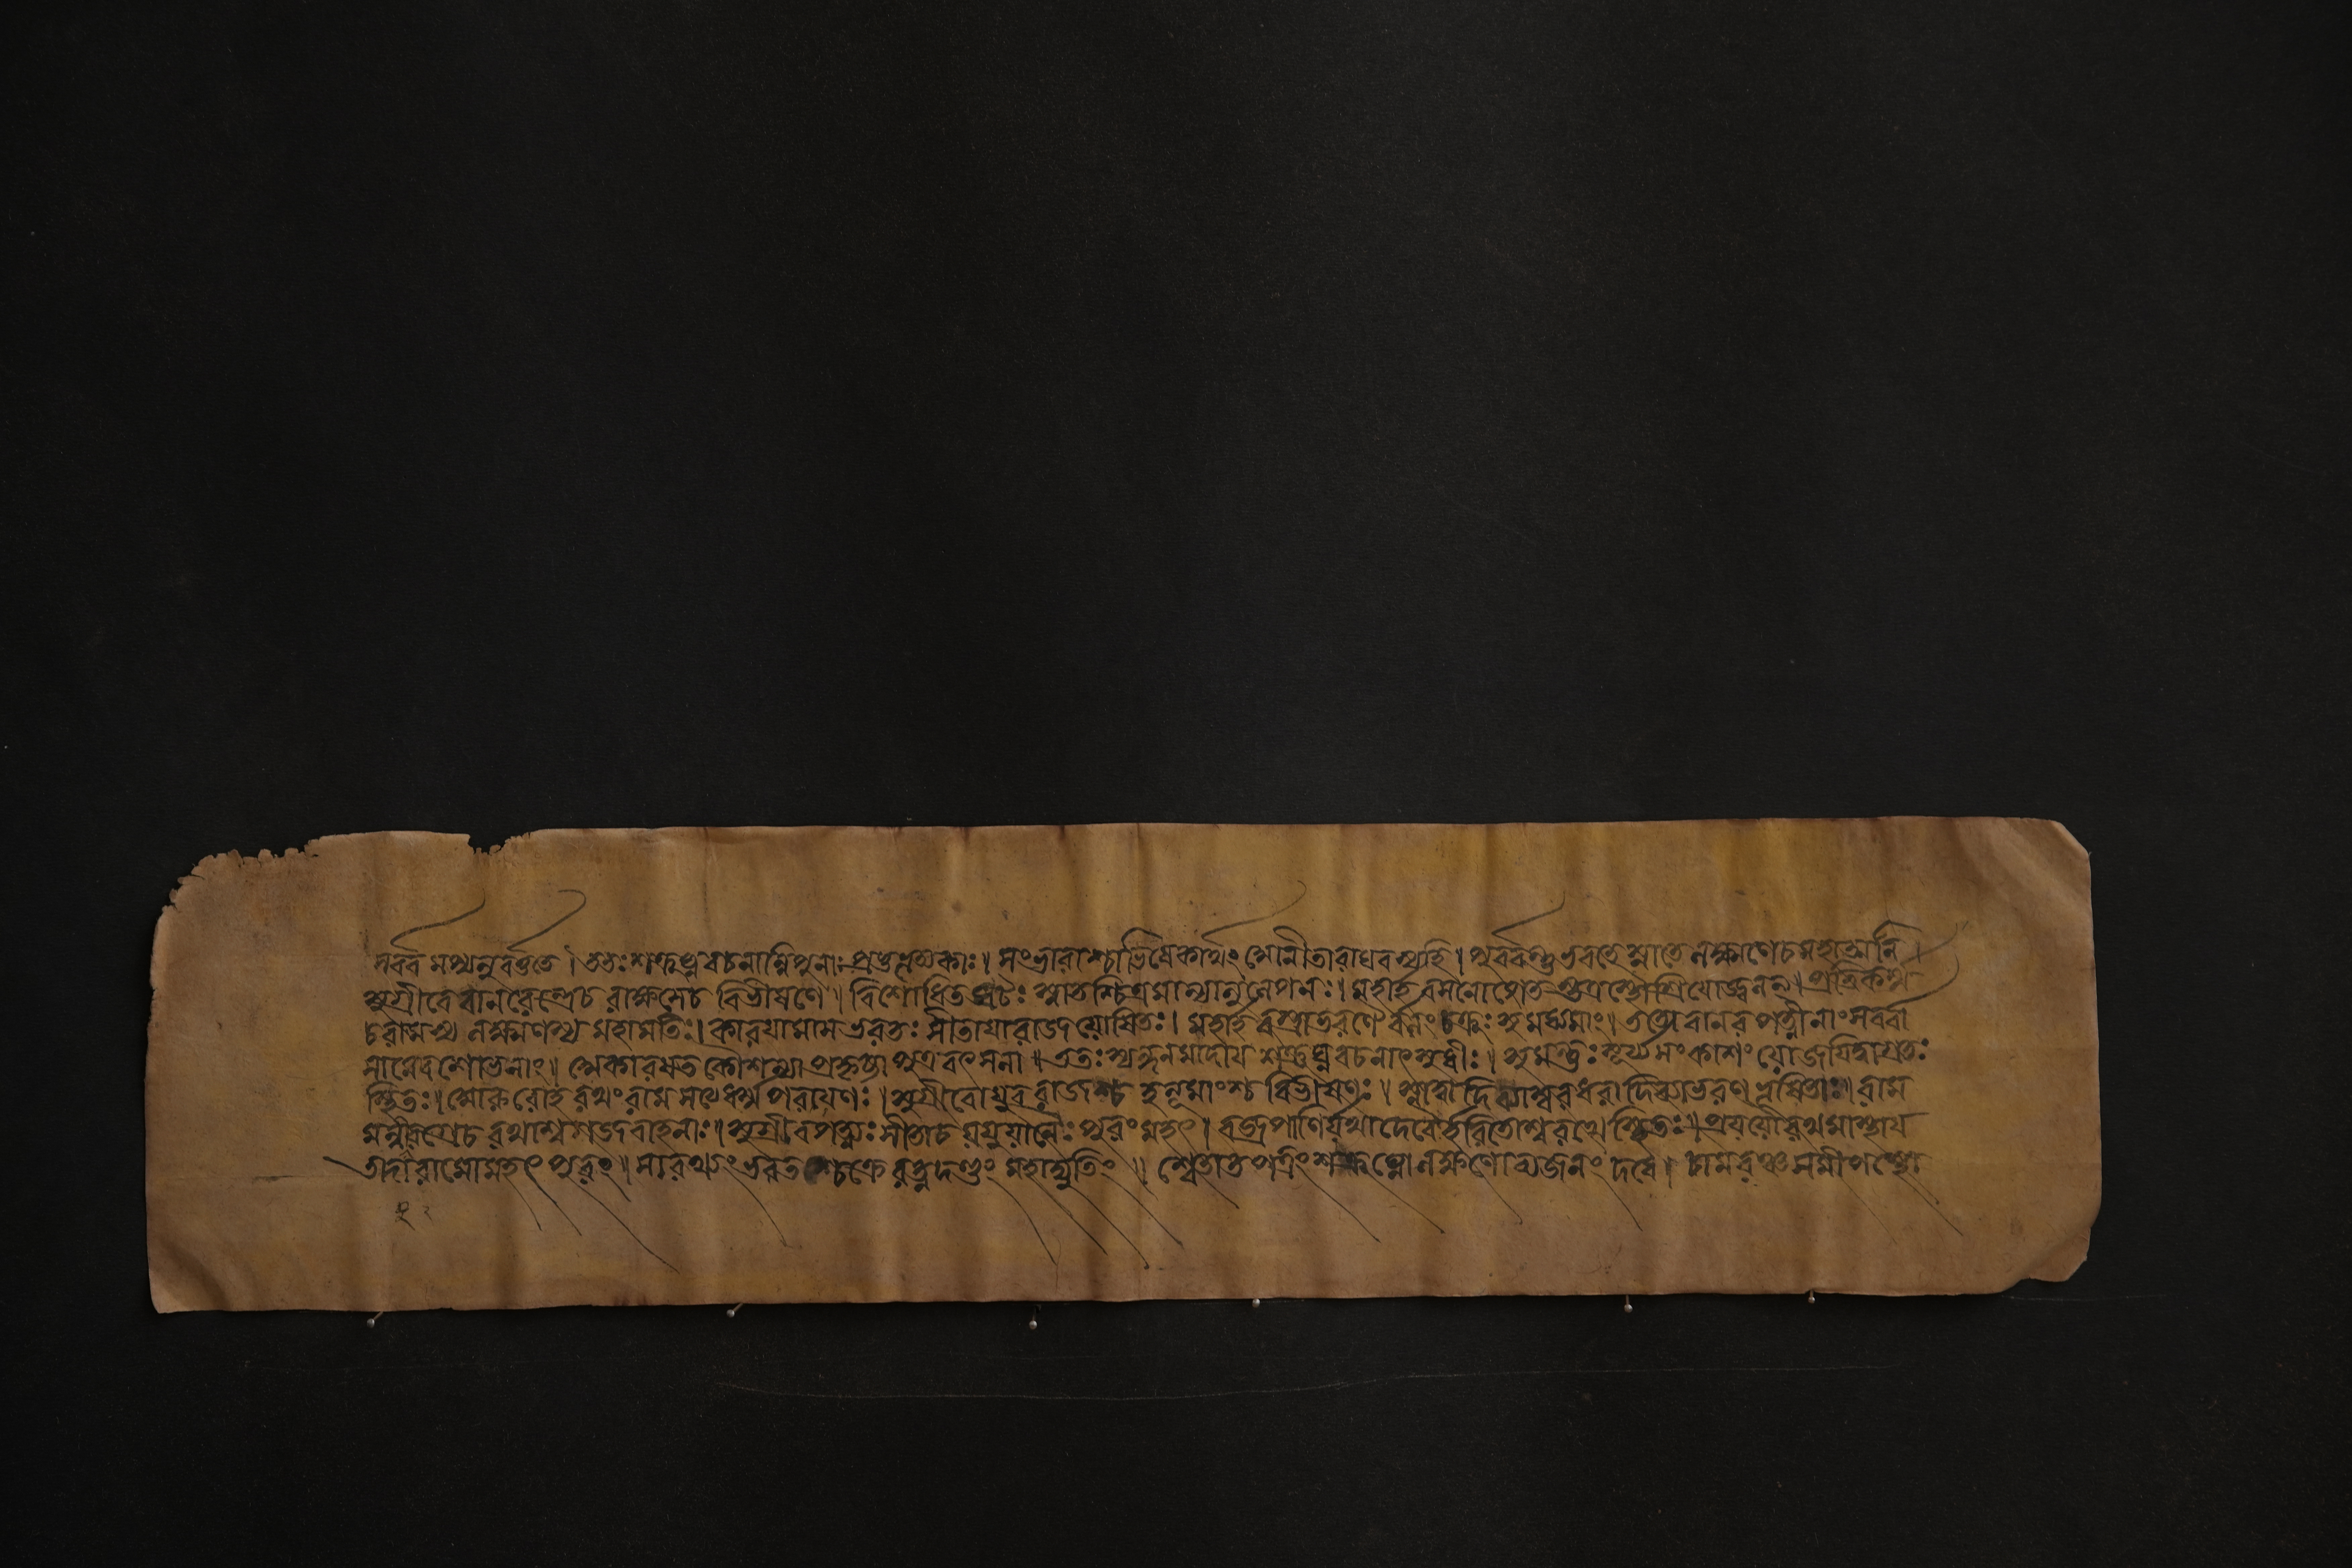 সর্ব্বমপ্যনুবর্ত্ততে। ততঃ শত্রুঘ্নবচনান্নিপুনাঃ । সংভারাশ্চাভিষেকার্থং রাঘবস্যহি। পূর্ব্বন্তু ভরতে স্নাতে লক্ষ্মণেচ মহাত্মনি।
সুগ্রীবে বানরেন্দ্রেচ রাক্ষসেচ বিভীষণে॥ বিশোধিতজটঃ স্নাতশ্চিত্রমাল্যানুলেপনঃ। মহার্হবসনোপেত শ্রিয়াজ্বলন্॥ প্রতিকর্ম্ম
চরামস্য লক্ষ্মণশ্চ মহামতিঃ। কারয়ামাস ভরতঃ সীতায়া রাজযোষিতঃ। মহার্হবস্ত্রাভরণৈ চক্রুঃ সুমধ্যমাং। ততো বানরপত্নীনাং সর্ব্বা
সামেবশোভনাং॥ কৌশল্যা প্রহৃষ্টা পুত্রবৎসলা॥ ততঃ স্যন্দনমাদায় শত্রুঘ্নবচনাৎ সুধীঃ। সুমন্ত্রঃ সূর্য্যসংকাশং যোজয়িত্বাগ্রতঃ
স্থিতঃ। রথং রাম সত্যধর্ম্মপরায়ণঃ। সুগ্রীবো যুবরাজশ্চ হনূমাংশ্চ বিভীষণঃ। স্নাত্বা দিব্যাম্বরধরা দিব্যাভরণভূষিতাঃ॥ রাম
মন্বীয়ুরগ্রেচ রথাশ্বগজবাহনাঃ। সুগ্রীবপত্ন্যঃ সীতাচ যযুর্যানৈঃ পুরং মহৎ। বজ্রপাণির্যথাদেবৈর্হরিতোশ্বরথে স্থিতঃ॥ প্রযযৌ রথমাস্থায়
তদা রামো মহৎ পুরং॥ সারথ্যং ভরতশ্চক্রে রত্নদণ্ডং মহাদ্যুতিং॥ শ্বেতাতপত্রং শত্রুঘ্নো লক্ষ্মণো ব্যজনং দধে। চামরঞ্চ সমীপস্থো